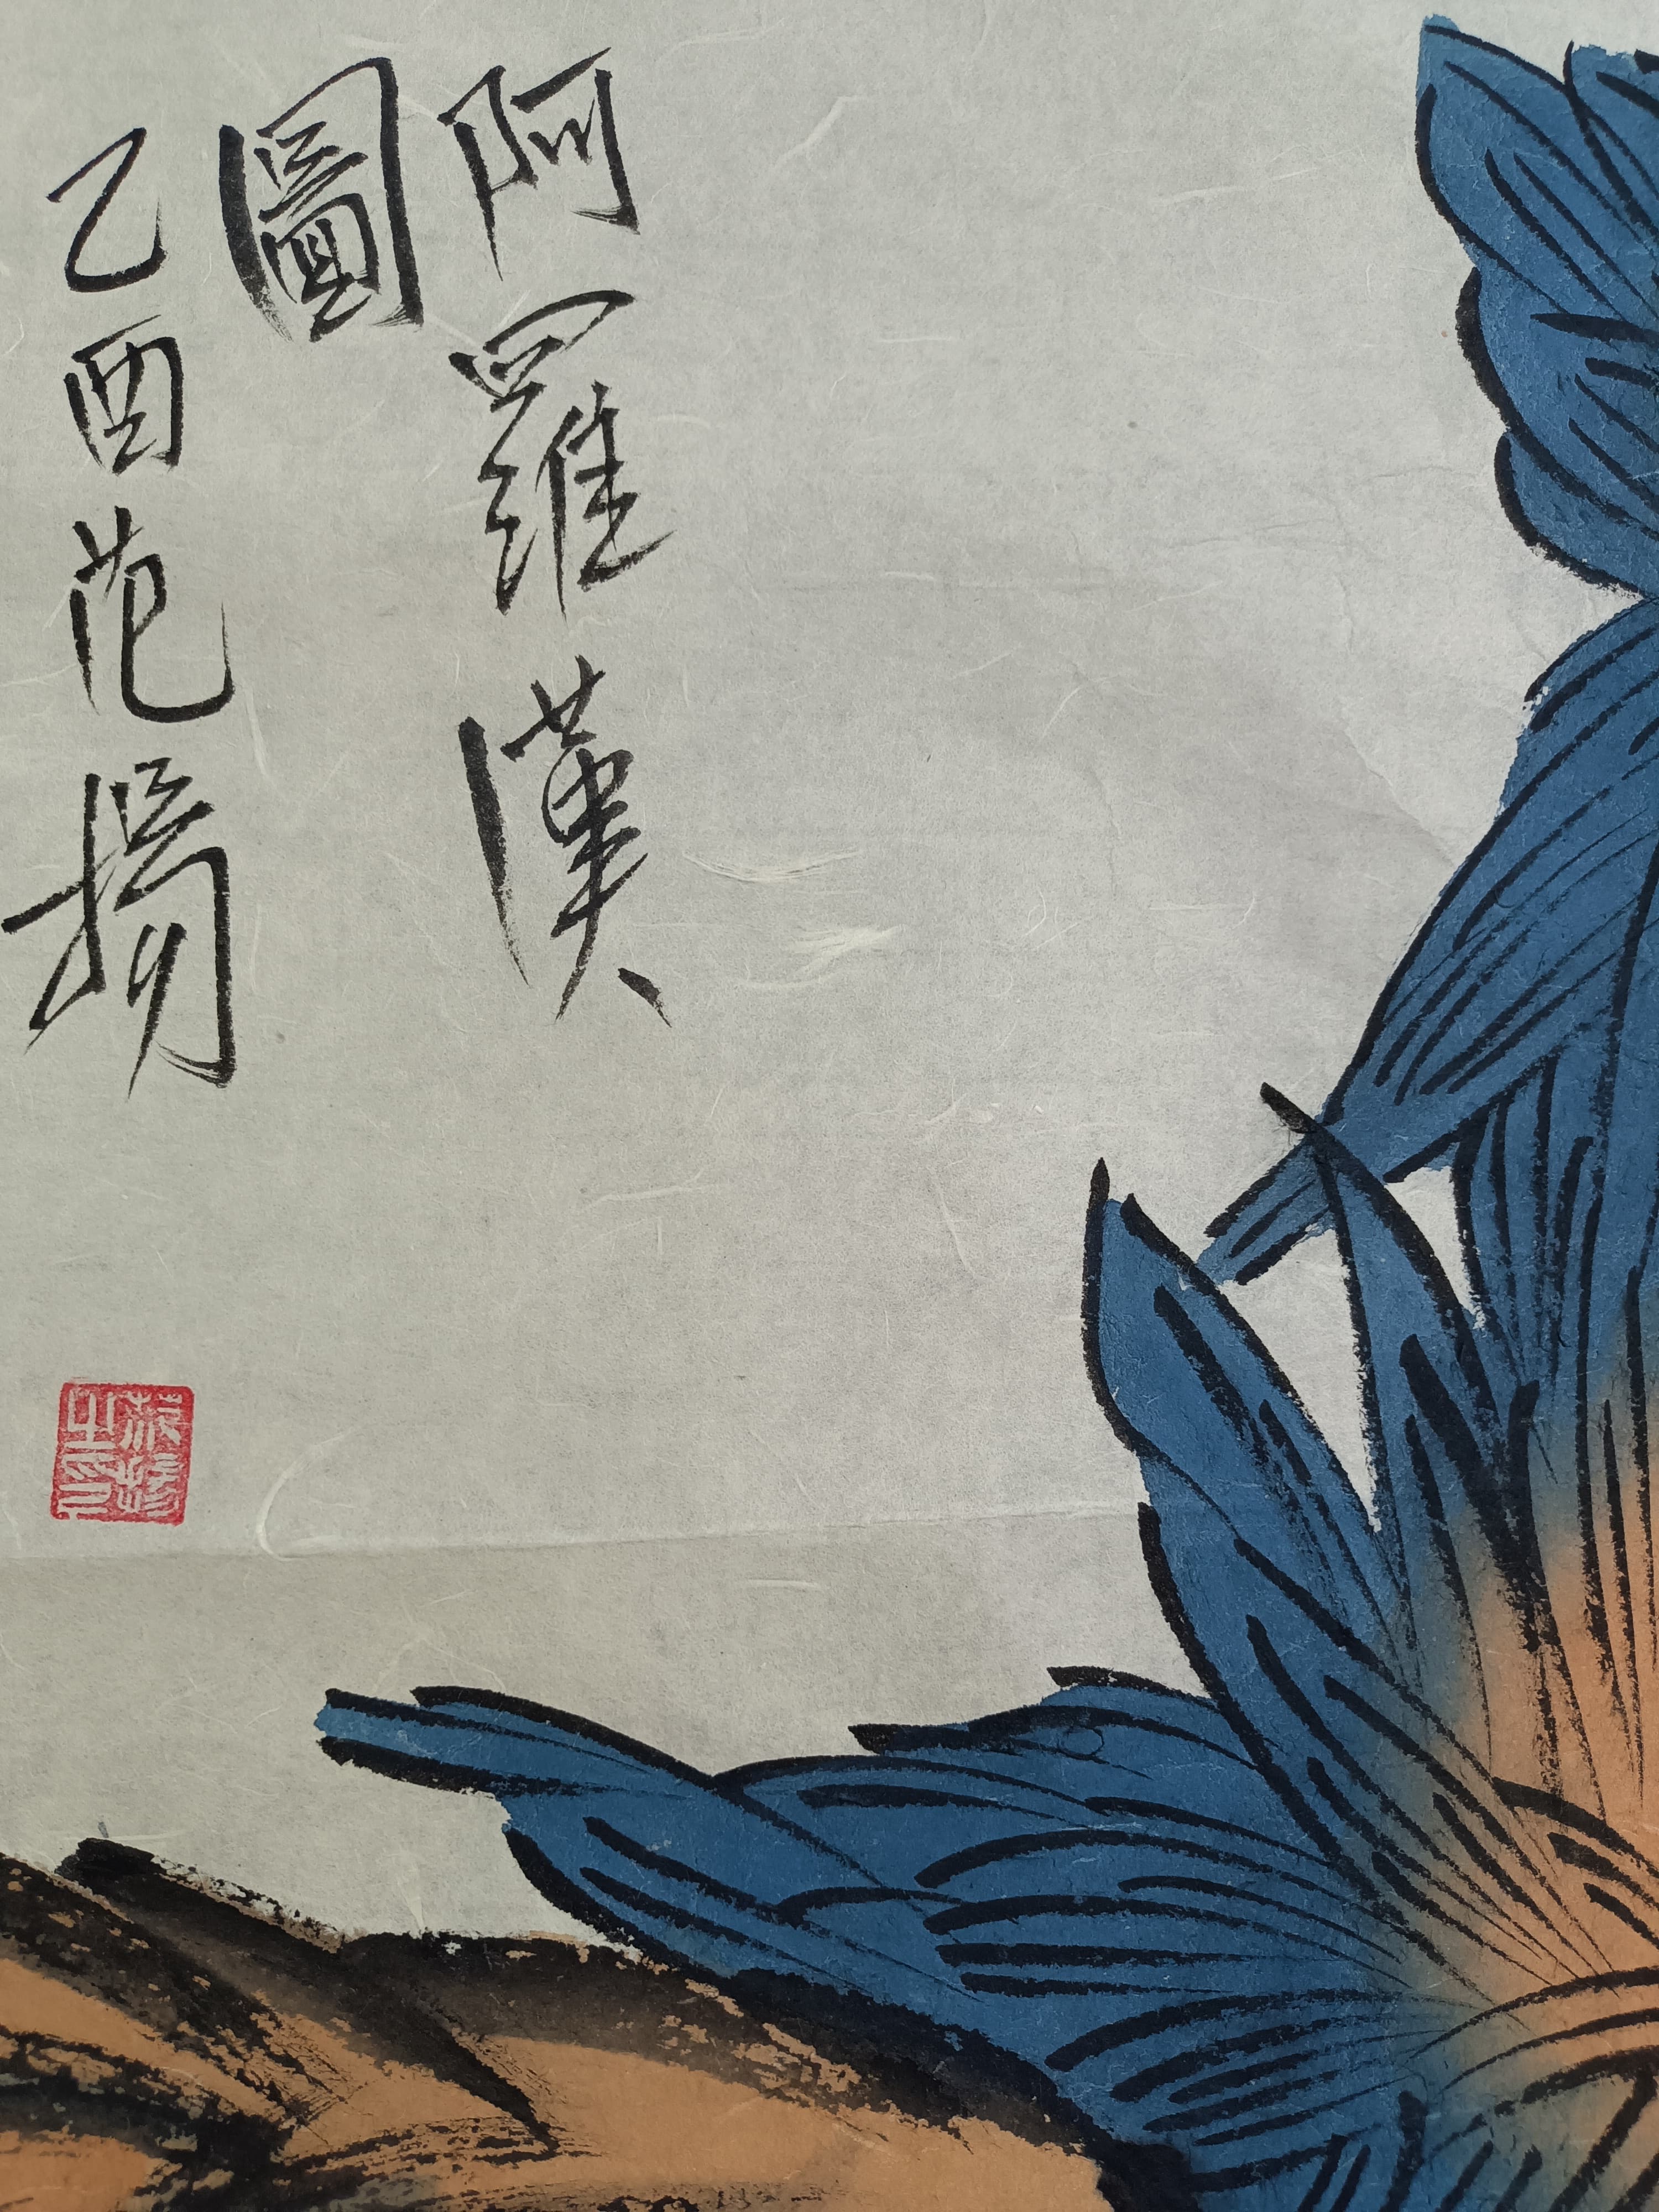 阿羅漢
圖
乙酉范揚